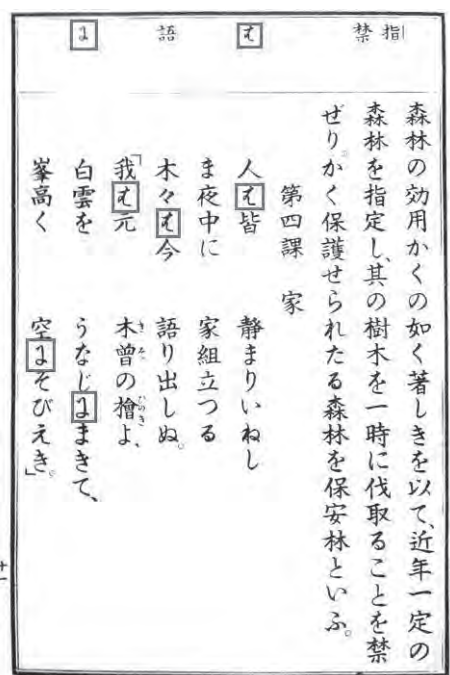 指
禁
は
語
に
森林の効用かくの如く著しきを以て、近年一定の
森林を指定し、其の樹木を一時に伐取ることを禁
ぜり。かく保護せられたる森林を保安林といふ。
第四課　家
人は皆　静まりいねし
ま夜中に　家組立つる
木々は今　語り出しぬ。
「我は元　木曾の檜よ、
白雲を　うなじにまきて、
峯高く　空にそびえき。」
十一